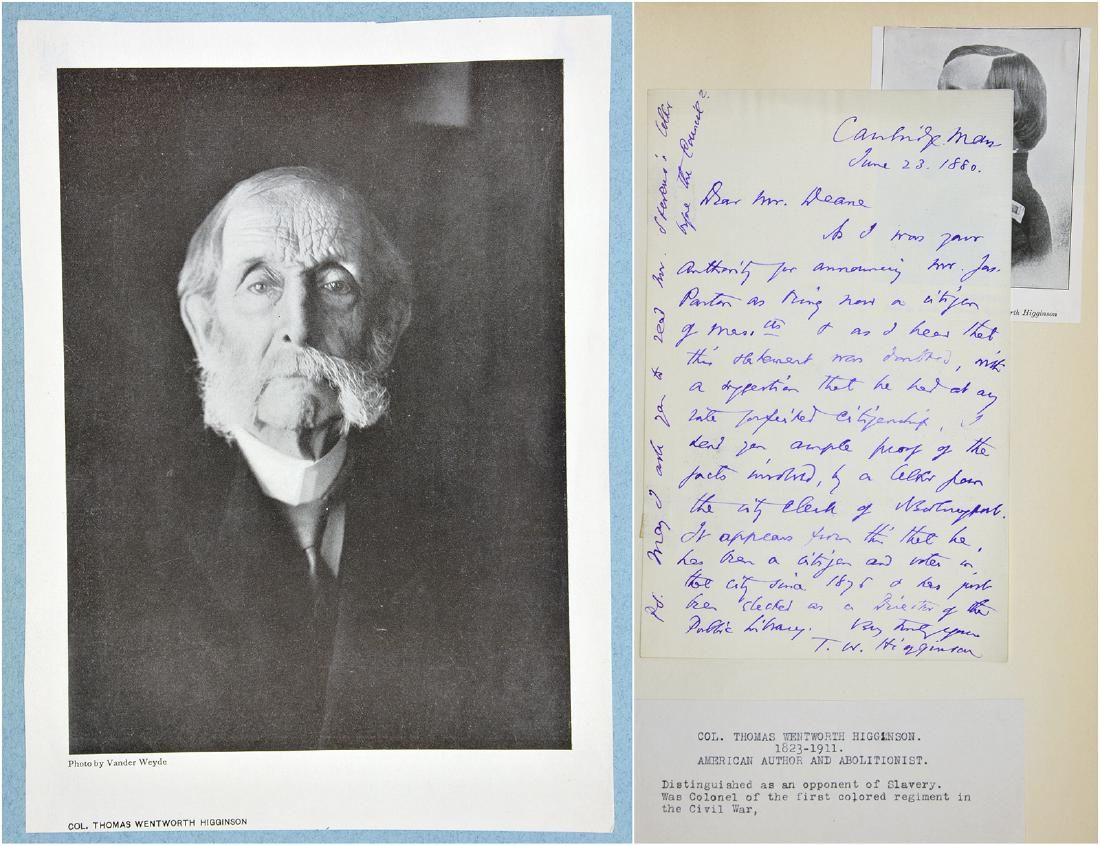 Photo by Vander Weyde
COL. THOMAS WENTWORTH HIGGINSON
Cambridge. Mass
June 23. 1880.
Dear Mr. Deane
As I was your
authority for announcing Mr. Jas.
Parton as being now a citizen
of Mass. &  as I hear that
this statement was doubted, with
a suggestion that he had at any
rate forfeited citizenship, I
send you ample proof of the
facts involved, by a letter from
the city clerk of Newburyport.
It appears from this that he
has been a citizen and voter in
that city since 1876 & has just
been elected as a Director of the
Public Library. Very truly yours
T. W. Higginson
P.S. May I ask you to read Mr. Stevens's letter
before the Council?
rth Higginson
COL. THOMAS WENTWORTH HIGGINSON.
1823-1911.
AMERICAN AUTHOR AND ABOLITIONIST.
Distinguished as an opponent of Slavery.
Was Colonel of the first colored regiment in
the Civil War,